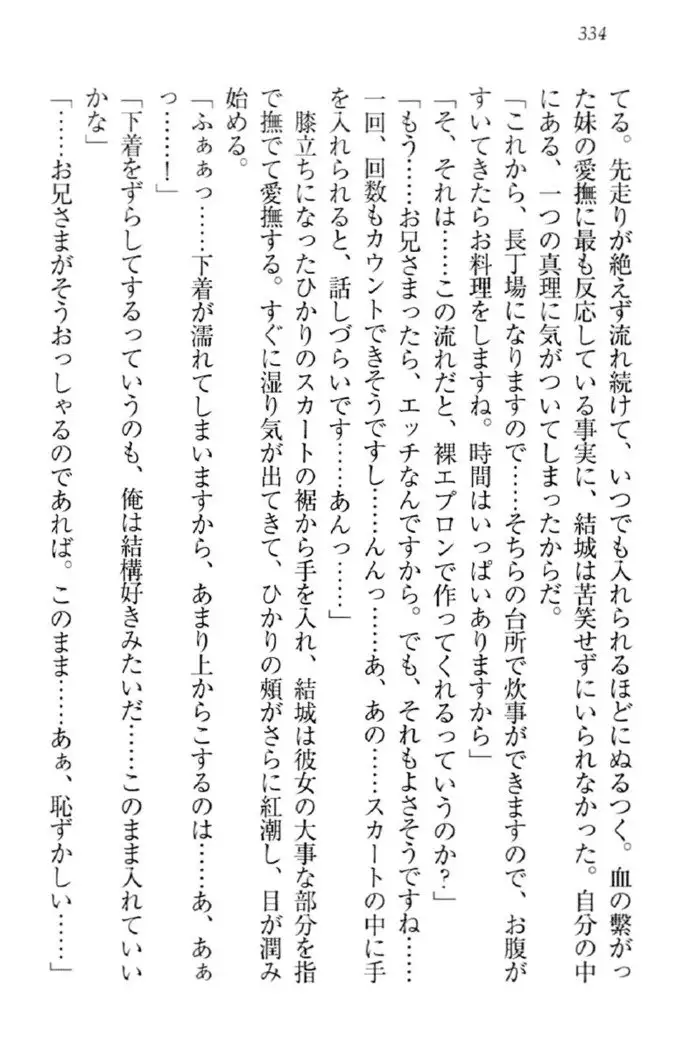 334
てる。先走りが絶えず流れ続けて、いつでも入れられるほどにぬるつく。血の繋がっ
た妹の愛撫に最も反応している事実に、結城は苦笑せずにいられなかった。自分の中
にある、一つの真理に気がついてしまったからだ。
「これから、長丁場になりますので……そちらの台所で炊事ができますので、お腹が
すいてきたらお料理をしますね。時間はいっぱいありますから」
「そ、それは……この流れだと、裸エプロンで作ってくれるっていうのか?」
「もう……お兄さまったら、エッチなんですから。でも、それもよさそうですね……
一回、回数もカウントできそうですし……んんっ……あ、あの……スカートの中に手
を入れられると、話しづらいです……あんっ……」
膝立ちになったひかりのスカートの裾から手を入れ、結城は彼女の大事な部分を指
で撫でて愛撫する。すぐに湿り気が出てきて、ひかりの頬がさらに紅潮し、目が潤み
始める。
「ふぁぁっ……下着が濡れてしまいますから、あまり上からこするのは……あ、あぁ
っ……!」
「下着をずらしてするっていうのも、俺は結構好きみたいだ……このまま入れていい
かな」
「……お兄さまがそうおっしゃるのであれば。このまま……あぁ、恥ずかしい……」